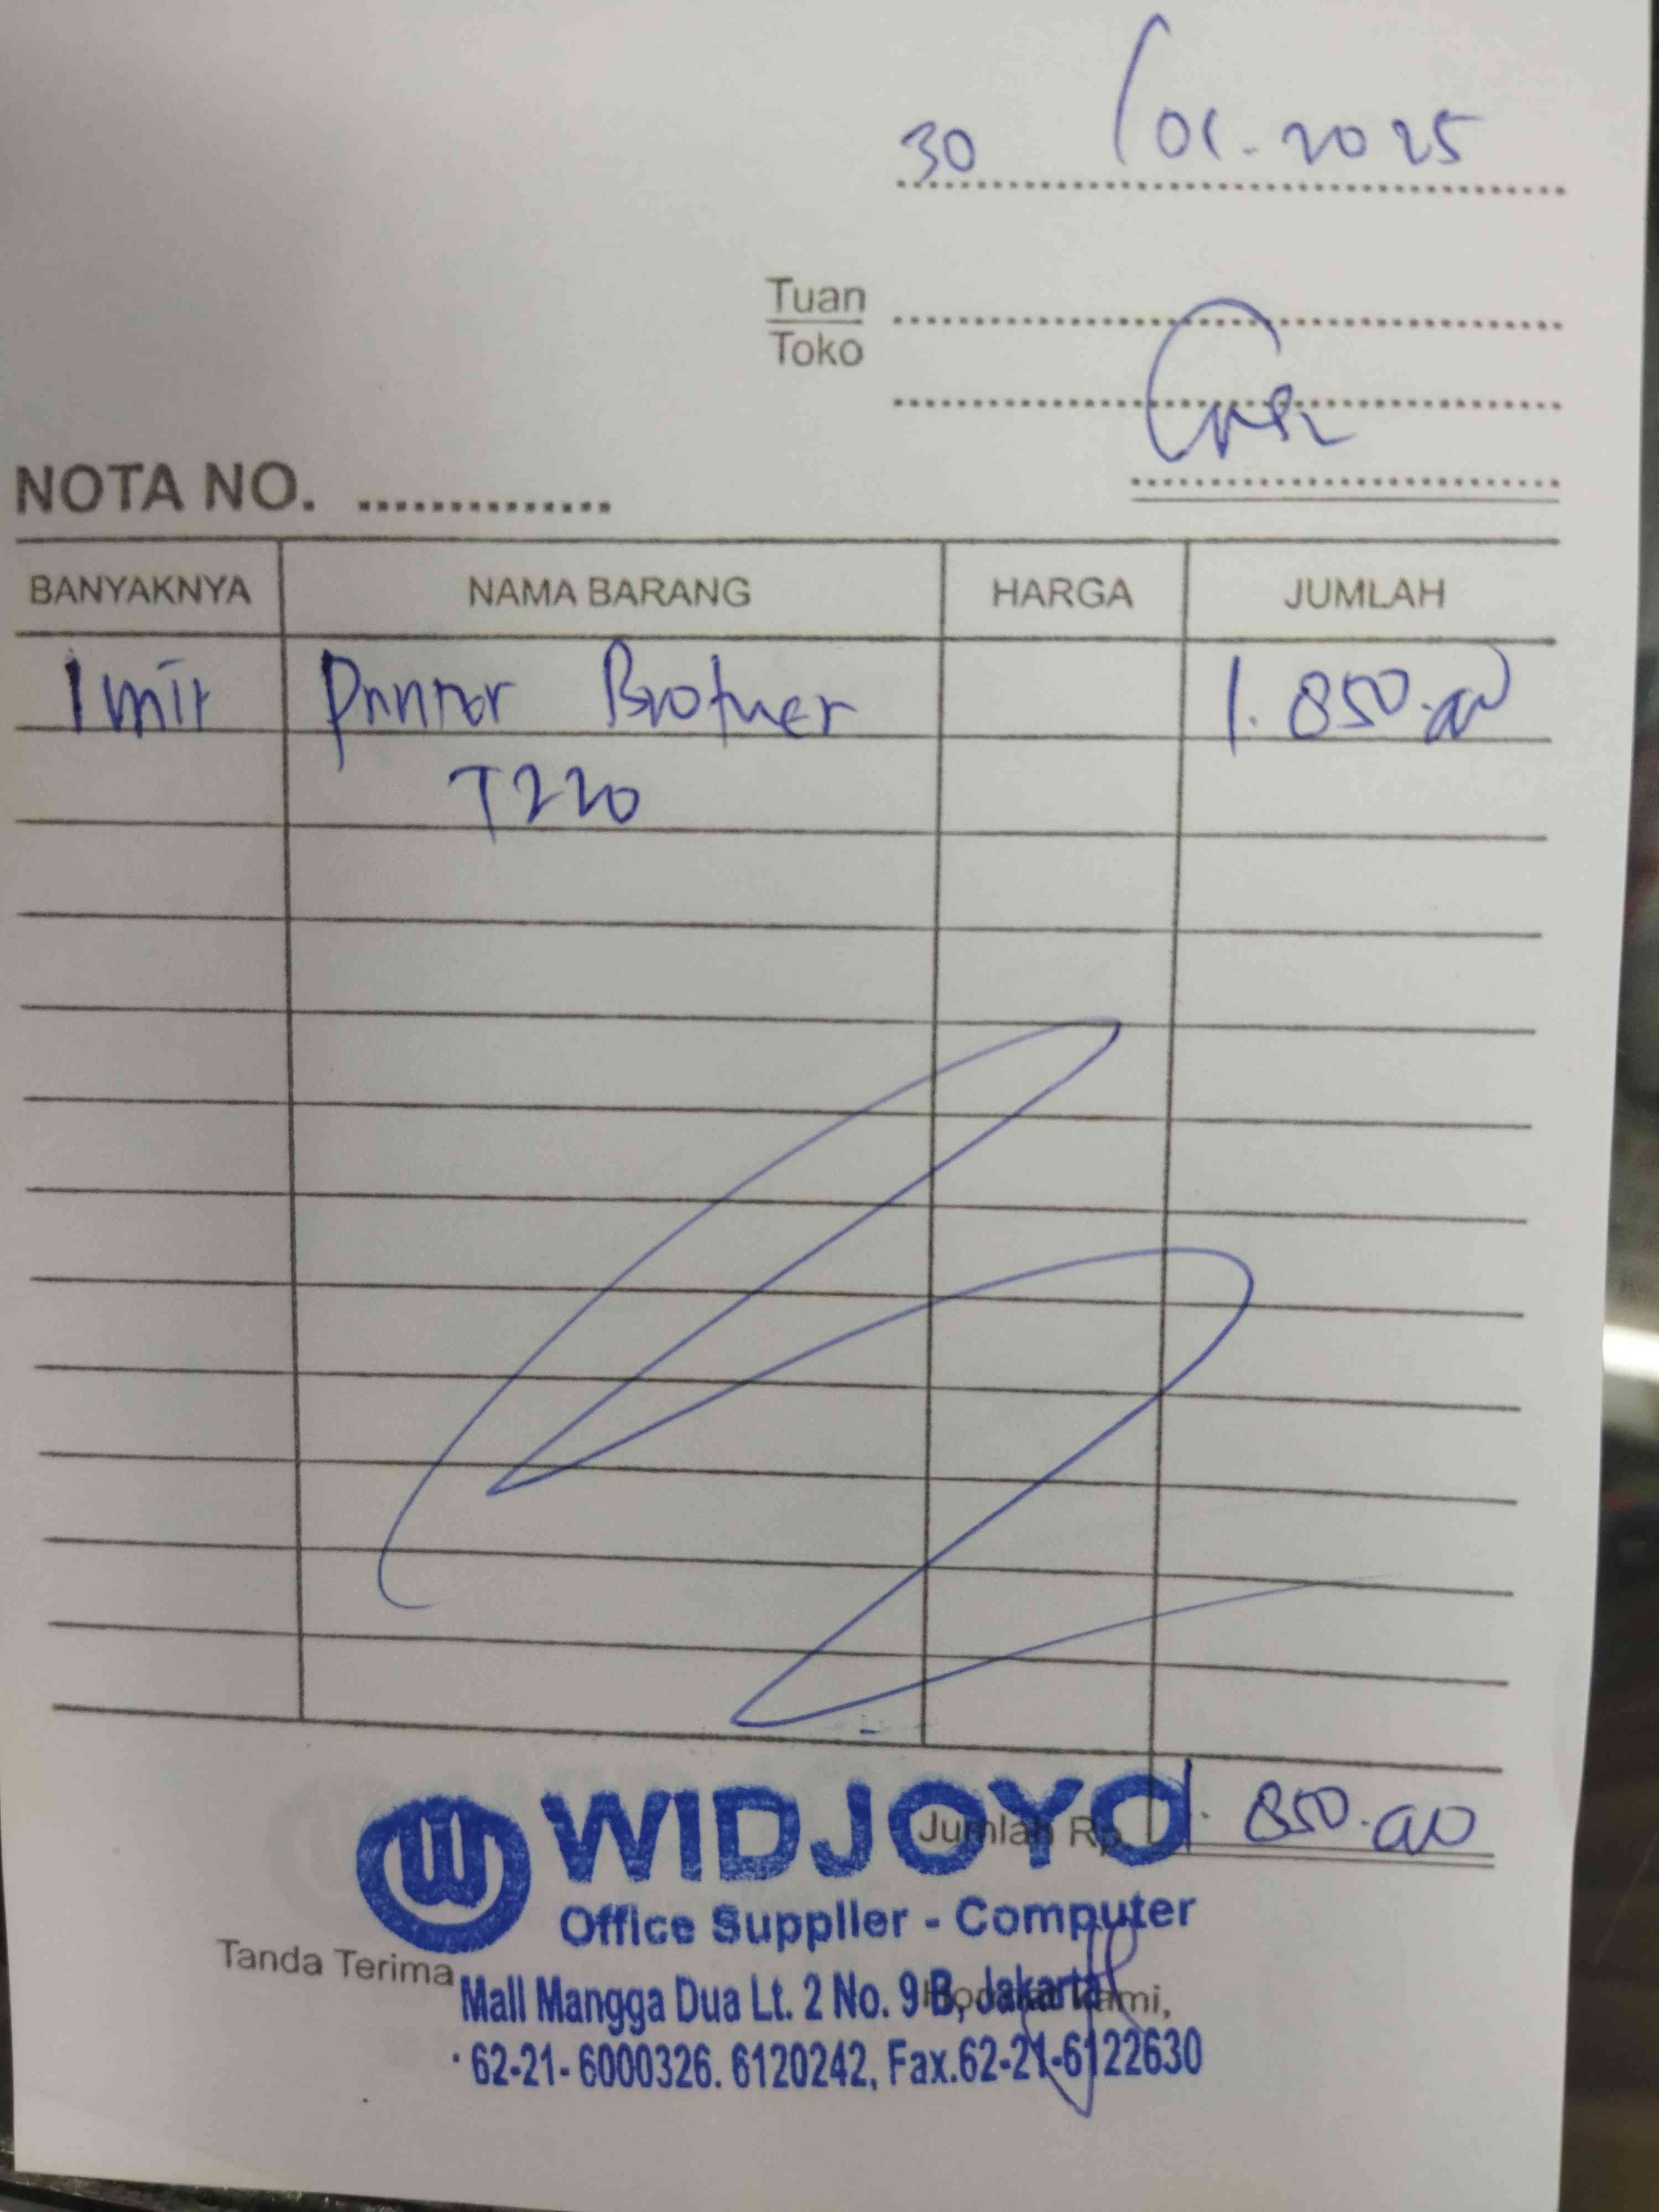 30 / 01 - 2025
Tuan
Toko
NOTA NO. ..............
BANYAKNYA NAMA BARANG HARGA JUMLAH
1 unit Printer Brother 1.850.000
T220
Jumlah Rp. 1.850.000
WIDJOYO
Office Supplier - Computer
Tanda Terima
Mall Mangga Dua Lt. 2 No. 9 B, Jakarta
Hormat Kami,
62-21- 6000326. 6120242, Fax.62-21-6122630